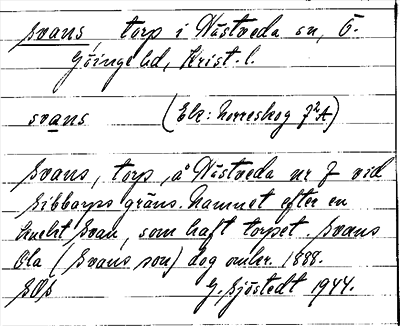 Svans, torp i Nästveda sn, Ö.
Göinge hd, Krist. l.
svans (Ek: Norreskog 7²A)
Svans, torp, å Nästveda nr 7 vid
Sibbarps gräns. Namnet efter en
knekt Svan, som haft torpet. Svans
Ola (Svans son) dog omkr. 1888.
SOS G. Sjöstedt 1944.